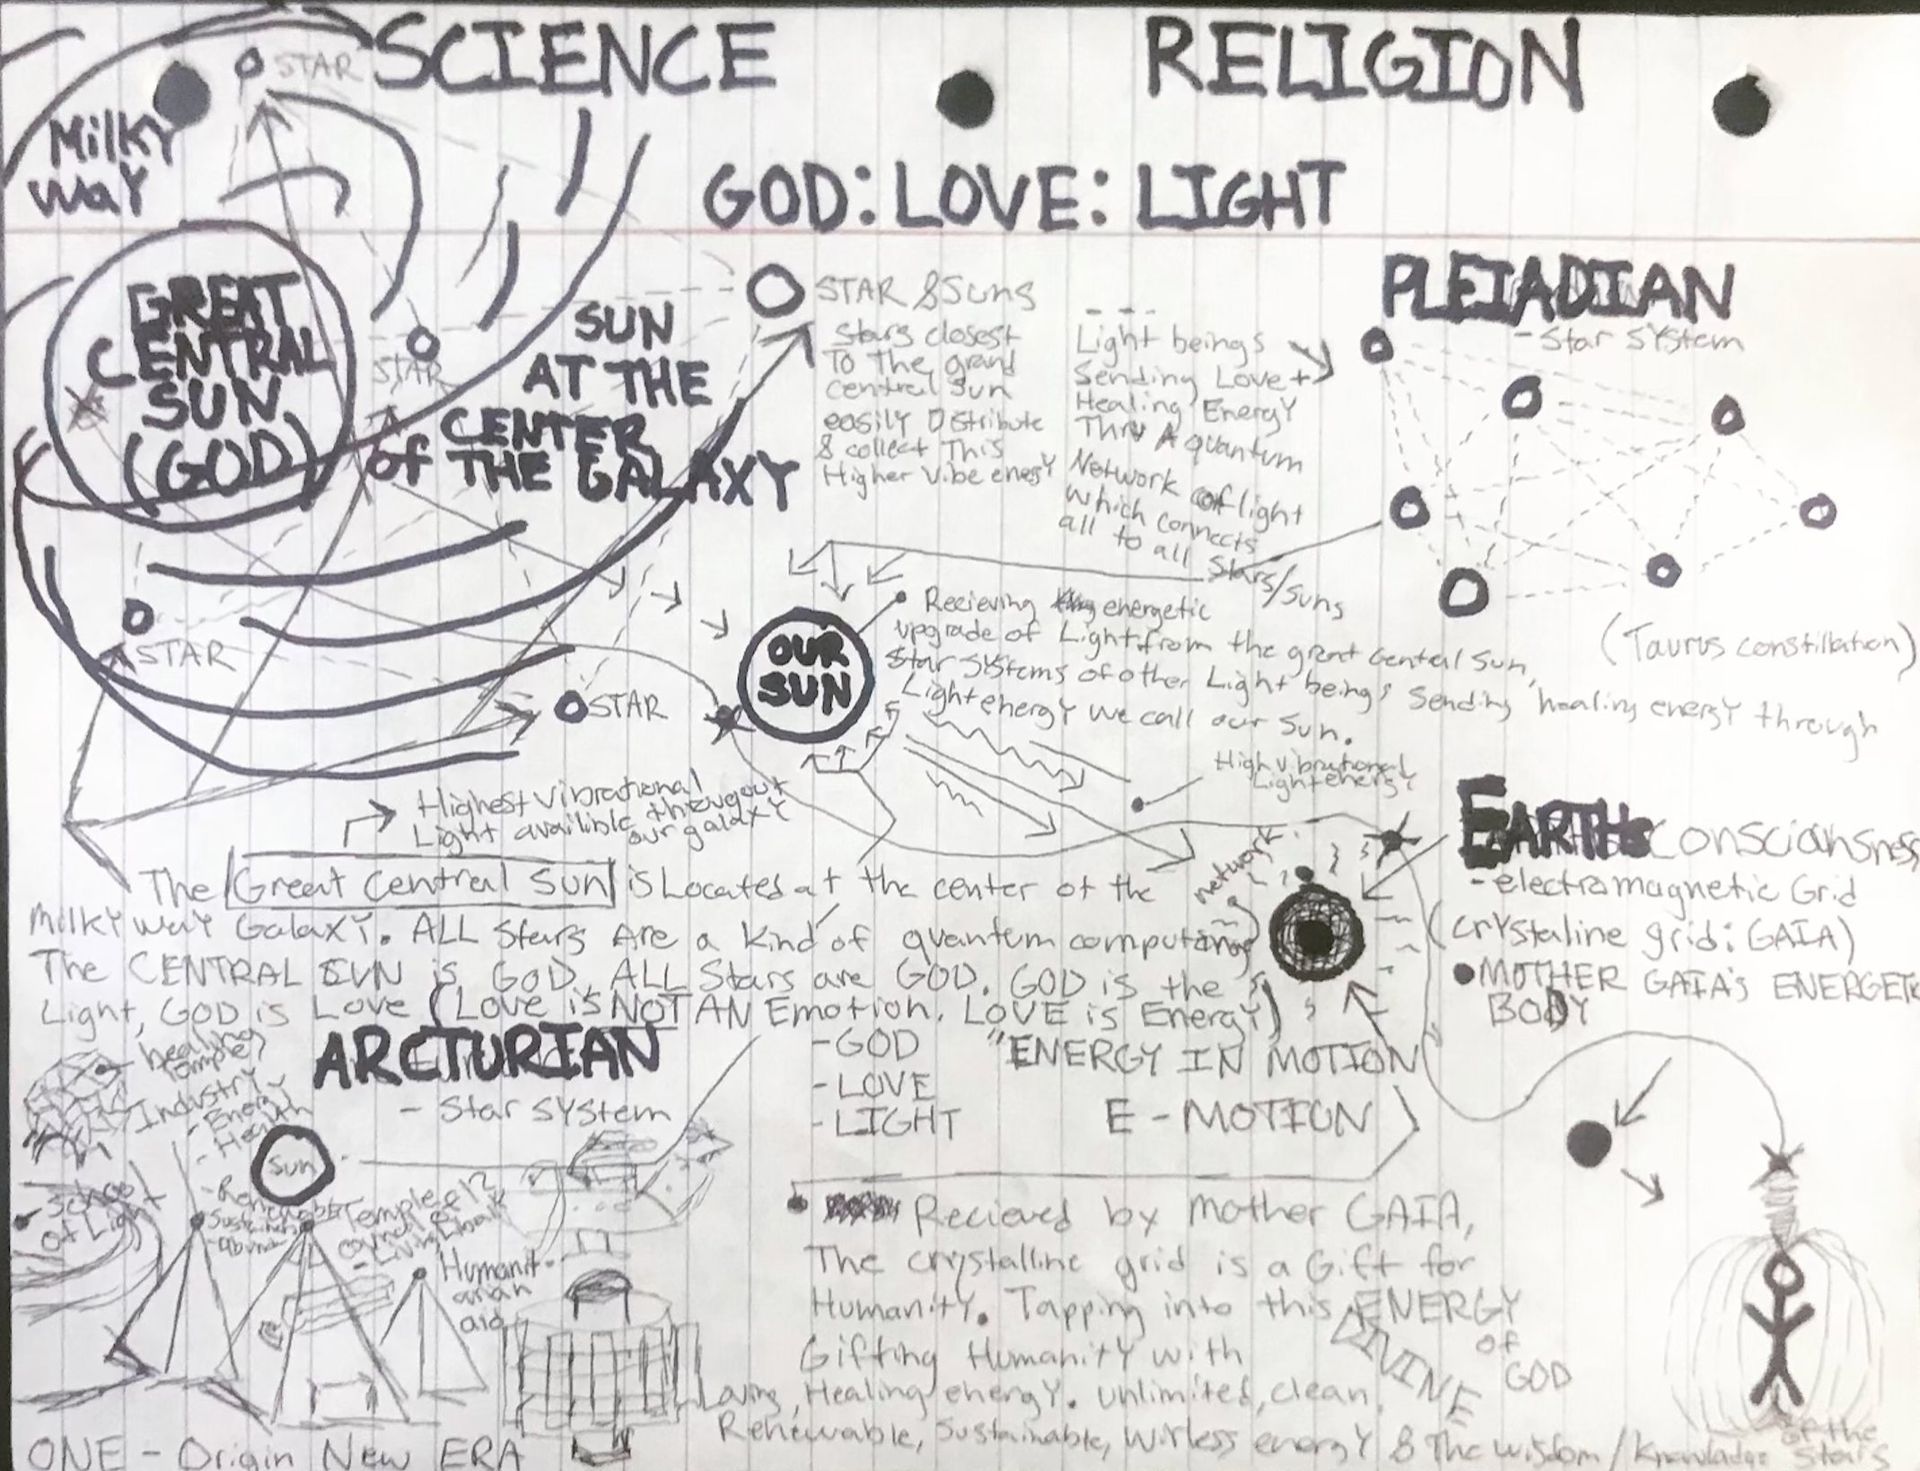 SCIENCE
RELIGION
STAR
MilKY
WaY
GOD: LOVE: LIGHT
GREAT
CENTRAL
SUN
(GOD)
STAR
SUN
AT THE
CENTER
of THE GALAXY
STAR & Suns
Stars closest
To The grand
central Sun
easily Distribute
& collect This
Higher Vibe energY
Light beings
Sending Love +
Healing EnergY
Thru A quantum
Network of light
which connects
all to all Stars/Suns
PLEIADIAN
- Star SYStem
(Taurus constillation)
STAR
STAR
OUR
SUN
Recieving energetic
upgrade of Light from the great central Sun,
Star SYStems of other Light beings Sending healing energY through
Light energY we call our Sun.
High vibrational
Light energY
Highest Vibrational
Light availible througout
our galaxY
The Great Central Sun is Located at the center of the
MilKY WaY GalaxY. ALL Stars Are a Kind of quantum computing
network
The CENTRAL SUN is GOD. ALL Stars are GOD. GOD is the
Light, GOD is Love (Love is NOT AN Emotion. LOVE is EnergY)
EARTHs Consciousness
- electromagnetic Grid
(crYstaline grid: GAIA)
MOTHER GAIA's ENERGETIC
BODY
-GOD
-LOVE
-LIGHT
"ENERGY IN MOTION
E - MOTION
ARCTURIAN
- Star SYStem
healing
Temples
IndustrY
- EnergY
- Health
Sun
School
of Light
Temple of 12
Humanit-
arian
aid
Recieved by Mother GAIA,
The crYstalline grid is a Gift for
HumanitY. Tapping into this ENERGY
DIVINE
of
GOD
Gifting HumanitY with
Loving, Healing energY. unlimited, clean,
Renewable, Sustainable, Wirless energY & The wisdom/Knowladge of the
Stars
ONE - Origin New ERA